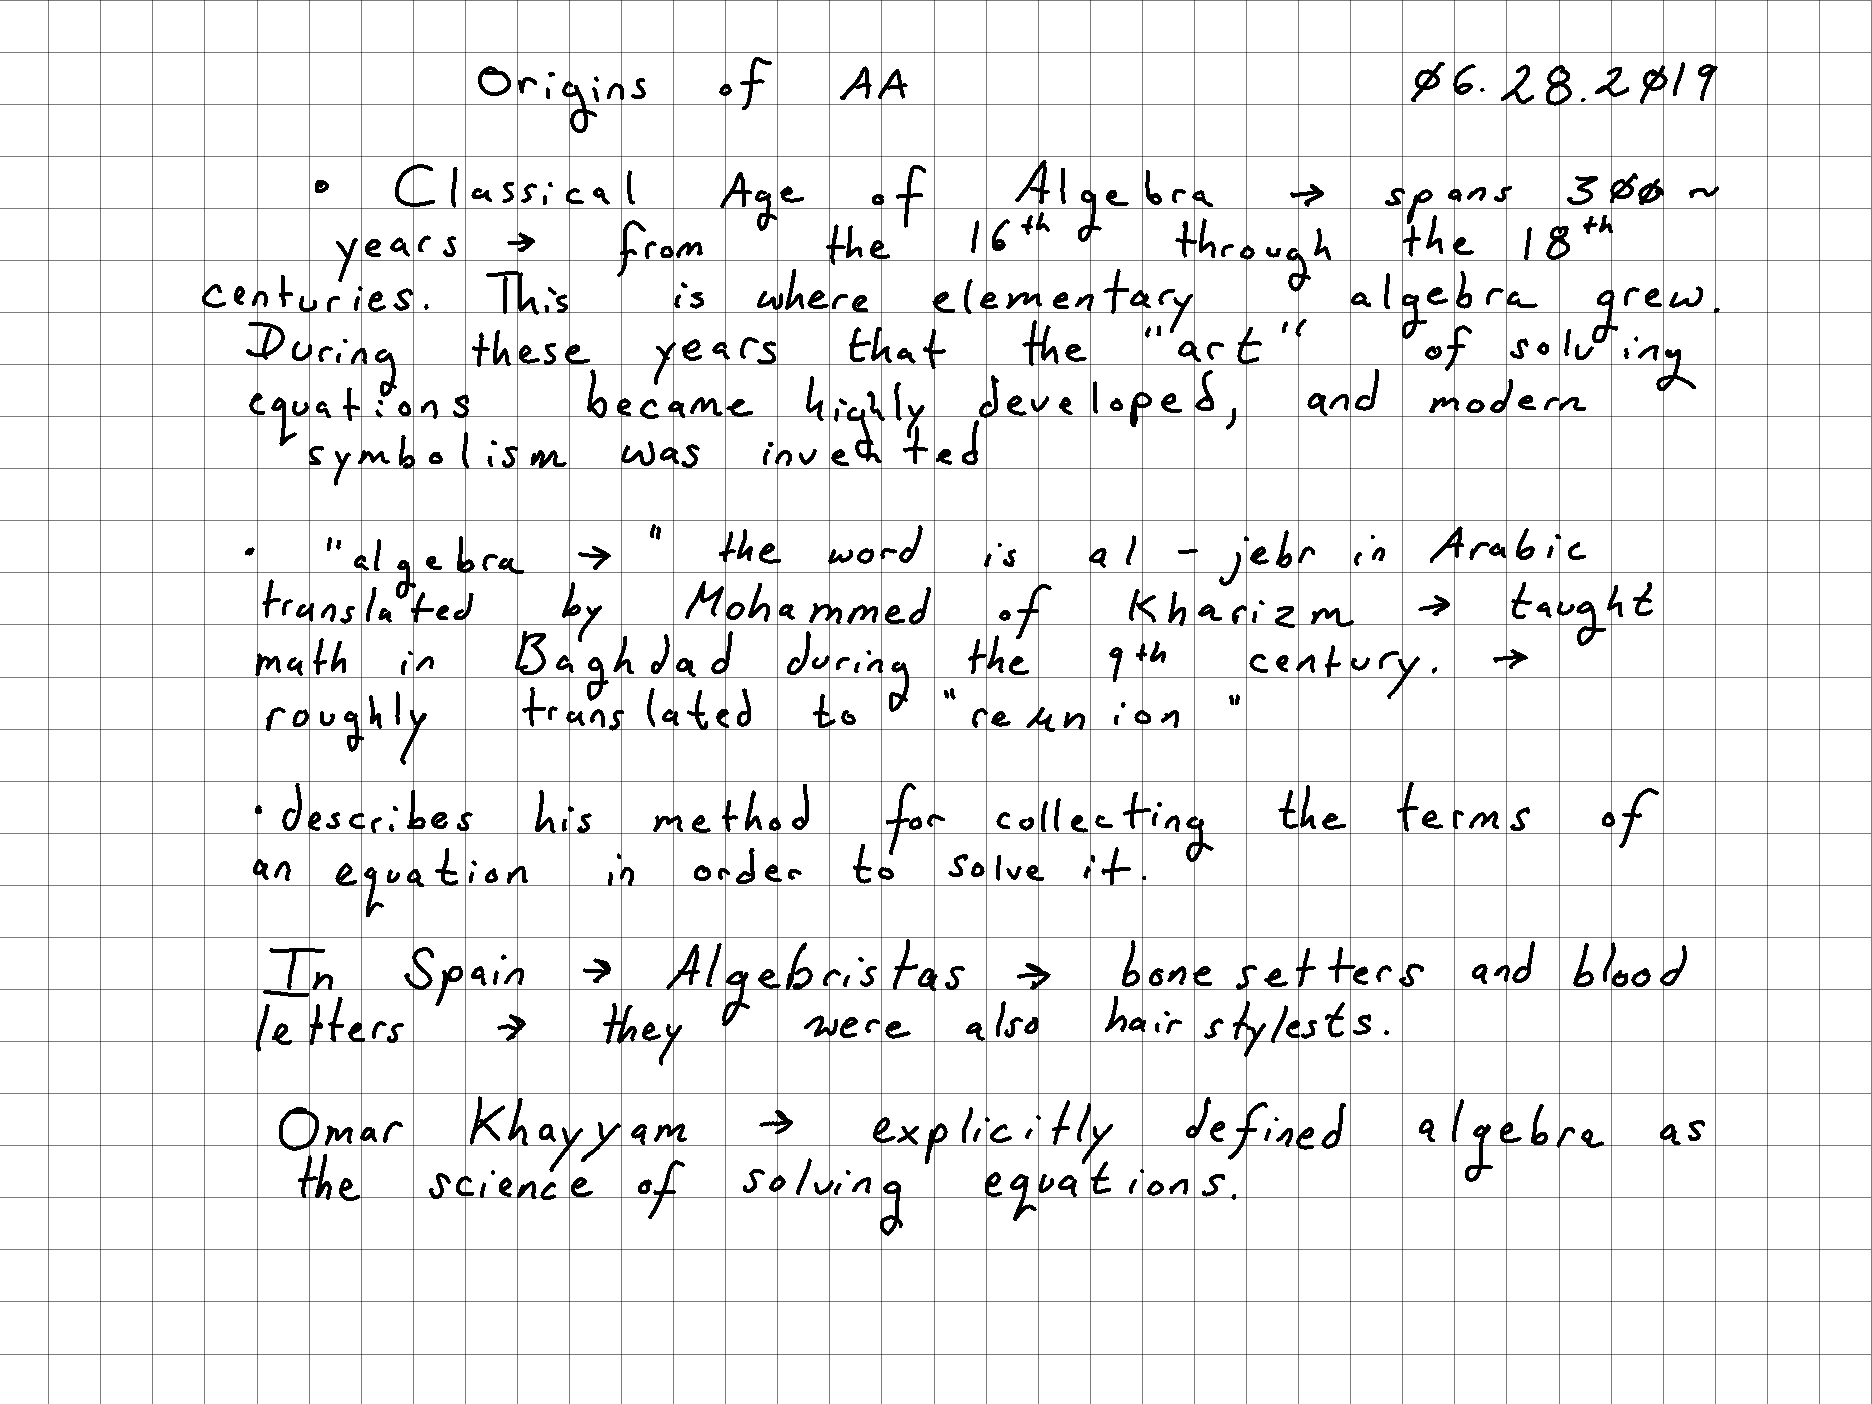 Origins of AA 06.28.2019
• Classical Age of Algebra → spans 300 ~
years → from the 16th through the 18th
centuries. This is where elementary algebra grew.
During these years that the "art" of solving
equations became highly developed, and modern
symbolism was invented
• "algebra → " the word is al - jebr in Arabic
translated by Mohammed of Kharizm → taught
math in Baghdad during the 9th century. →
roughly translated to "reunion"
• describes his method for collecting the terms of
an equation in order to solve it.
In Spain → Algebristas → bone setters and blood
letters → they were also hair stylests.
Omar Khayyam → explicitly defined algebra as
the science of solving equations.